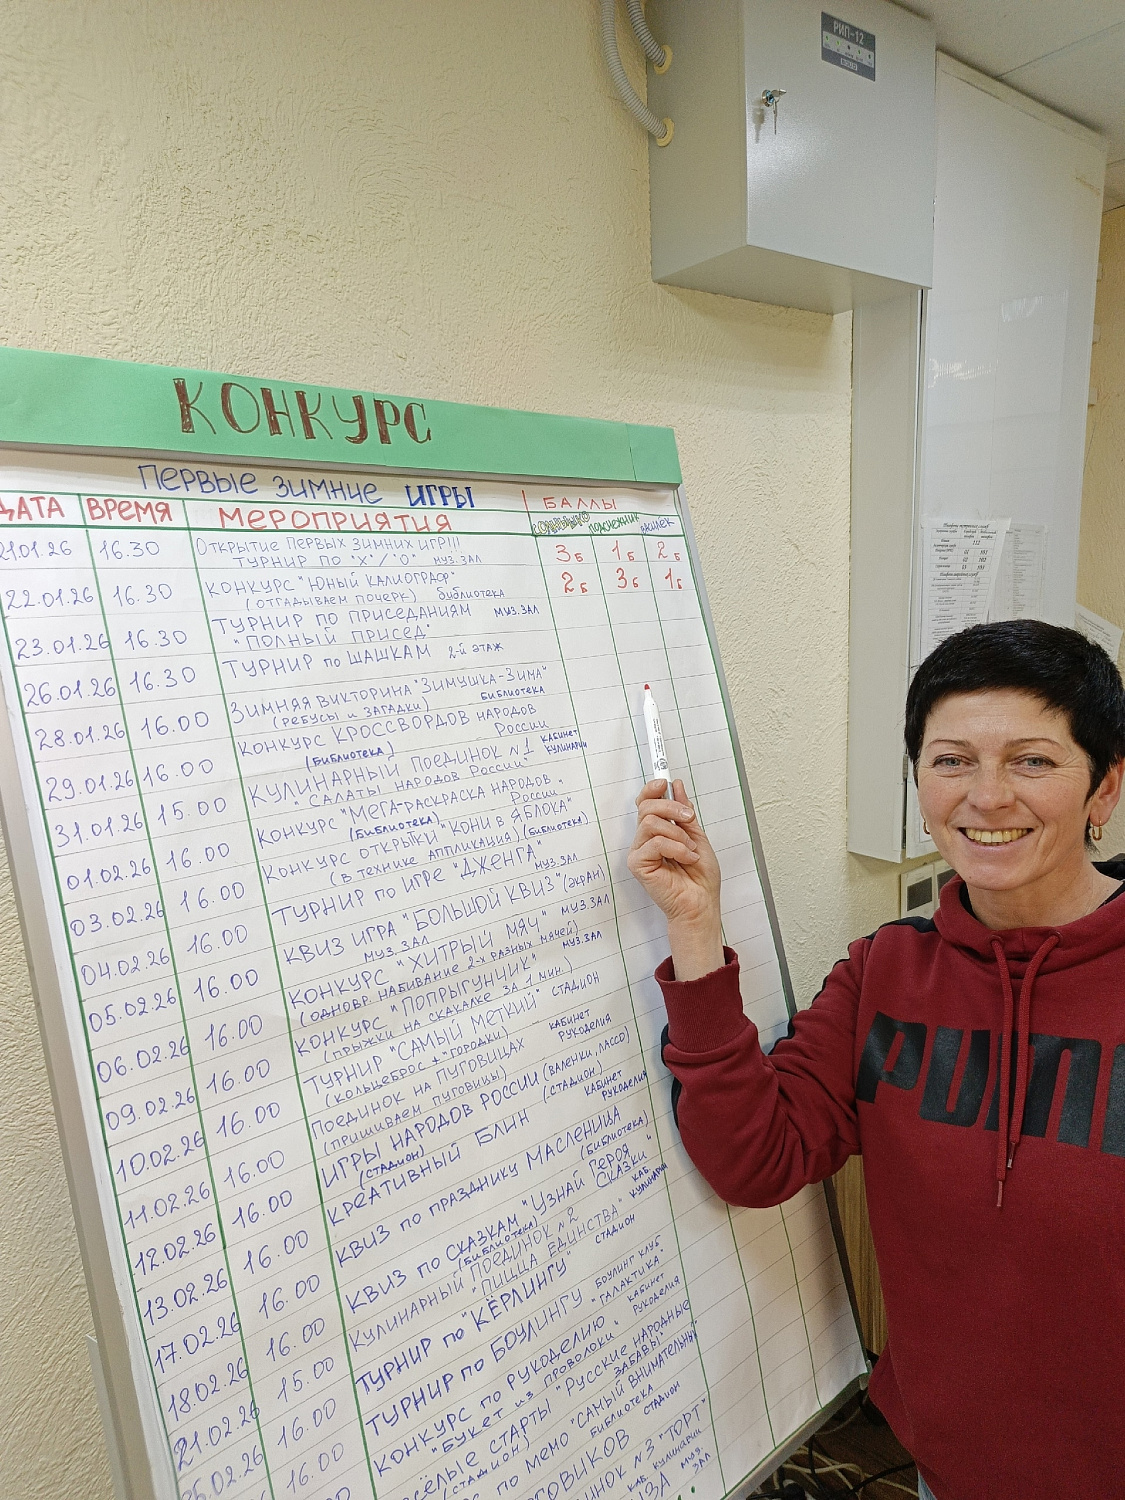 РИП-12
КОНКУРС
ПЕРВЫЕ ЗИМНИЕ ИГРЫ
ДАТА ВРЕМЯ МЕРОПРИЯТИЯ БАЛЛЫ
СОЛНЫШКО ПОДСНЕЖНИК
21.01.26 16.30 ОТКРЫТИЕ ПЕРВЫХ ЗИМНИХ ИГР!!! 3Б 1Б 2Б
ТУРНИР ПО "Х"/"О" МУЗ.ЗАЛ
22.01.26 16.30 КОНКУРС "ЮНЫЙ КАЛИОГРАФ" 2Б 3Б 1Б
(ОТГАДЫВАЕМ ПОЧЕРК) БИБЛИОТЕКА
23.01.26 16.30 ТУРНИР ПО ПРИСЕДАНИЯМ МУЗ.ЗАЛ
"ПОЛНЫЙ ПРИСЕД"
26.01.26 16.30 ТУРНИР ПО ШАШКАМ 2-Й ЭТАЖ
28.01.26 16.00 ЗИМНЯЯ ВИКТОРИНА "ЗИМУШКА-ЗИМА"
(РЕБУСЫ И ЗАГАДКИ) БИБЛИОТЕКА
29.01.26 16.00 КОНКУРС КРОССВОРДОВ НАРОДОВ
(БИБЛИОТЕКА) РОССИИ
31.01.26 15.00 КУЛИНАРНЫЙ ПОЕДИНОК №1 КАБИНЕТ
"САЛАТЫ НАРОДОВ РОССИИ" КУЛИНАРИИ
01.02.26 16.00 КОНКУРС "МЕГА-РАСКРАСКА НАРОДОВ
(БИБЛИОТЕКА) РОССИИ
03.02.26 16.00 КОНКУРС ОТКРЫТКИ "КОНИ В ЯБЛОКА"
(В ТЕХНИКЕ АППЛИКАЦИЯ) (БИБЛИОТЕКА)
04.02.26 16.00 ТУРНИР ПО ИГРЕ "ДЖЕНГА"
МУЗ.ЗАЛ
05.02.26 16.00 КВИЗ ИГРА "БОЛЬШОЙ КВИЗ" (ЭКРАН)
МУЗ.ЗАЛ
06.02.26 16.00 КОНКУРС "ХИТРЫЙ МЯЧ" МУЗ.ЗАЛ
(ОДНОВР. НАБИВАНИЕ 2-Х РАЗНЫХ МЯЧЕЙ)
09.02.26 16.00 КОНКУРС "ПОПРЫГУНЧИК" МУЗ.ЗАЛ
(ПРЫЖКИ НА СКАКАЛКЕ ЗА 1 МИН.)
10.02.26 16.00 ТУРНИР "САМЫЙ МЕТКИЙ" СТАДИОН
(КОЛЬЦЕБРОС + "ГОРОДКИ")
11.02.26 16.00 ПОЕДИНОК НА ПУГОВИЦАХ КАБИНЕТ
(ПРИШИВАЕМ ПУГОВИЦЫ) РУКОДЕЛИЯ
12.02.26 16.00 ИГРЫ НАРОДОВ РОССИИ (ВАЛЕНКИ, ЛАССО)
(СТАДИОН) (СТАДИОН)
13.02.26 16.00 КРЕАТИВНЫЙ БЛИН КАБИНЕТ
РУКОДЕЛИЯ
17.02.26 16.00 КВИЗ ПО ПРАЗДНИКУ МАСЛЕНИЦА
(БИБЛИОТЕКА)
18.02.26 16.00 КВИЗ ПО СКАЗКАМ "УЗНАЙ ГЕРОЯ
(БИБЛИОТЕКА) СКАЗКИ"
21.02.26 15.00 КУЛИНАРНЫЙ ПОЕДИНОК №2 КАБ.
"ПИЦЦА ЕДИНСТВА" КУЛИНАРИИ
25.02.26 16.00 ТУРНИР ПО "КЁРЛИНГУ" СТАДИОН
16.00 ТУРНИР ПО БОУЛИНГУ БОУЛИНГ КЛУБ
"ГАЛАКТИКА"
КОНКУРС ПО РУКОДЕЛИЮ КАБИНЕТ
"БУКЕТ ИЗ ПРОВОЛОКИ" РУКОДЕЛИЯ
СЁЛЫЕ СТАРТЫ "РУССКИЕ НАРОДНЫЕ
(СТАДИОН) ЗАБАВЫ"
ПО МЕМО "САМЫЙ ВНИМАТЕЛЬНЫЙ"
БИБЛИОТЕКА
ГОВИКОВ СТАДИОН
ИНОК №3 "ТОРТ"
КАБ. КУЛИНАРИИ
МУЗ.
ЗАЛ
PUM